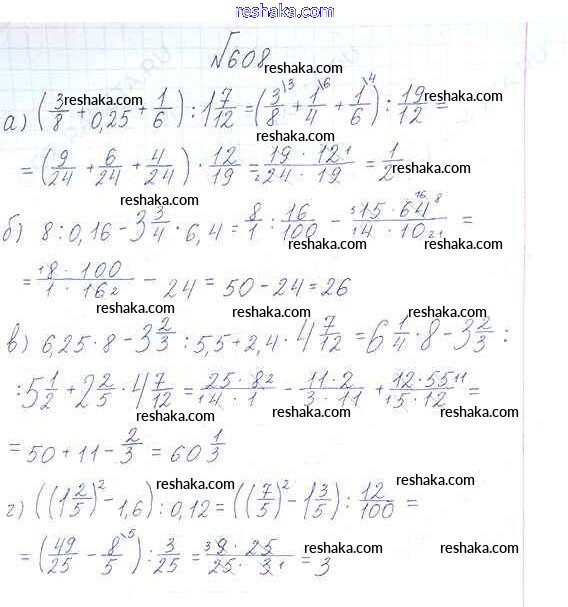 reshaka.com
№608
reshaka.com reshaka.com
а) (3/8 + 0,25 + 1/6) : 1 7/12 = (3/8 \3 + 1/4 \6 + 1/6 \4) : 19/12 =
reshaka.com reshaka.com reshaka.com
= (9/24 + 6/24 + 4/24) · 12/19 = 19 · 12 1 / 2 24 · 19 = 1/2
reshaka.com reshaka.com
б) 8 : 0,16 - 3 3/4 · 6,4 = 8/1 : 16/100 - 3 15 · 64 16 8 / 1 4 · 10 2 1 =
reshaka.com reshaka.com
= 1 8 · 100 / 1 · 16 2 - 24 = 50 - 24 = 26
reshaka.com reshaka.com
в) 6,25 · 8 - 3 2/3 : 5,5 + 2,4 · 4 7/12 = 6 1/4 · 8 - 3 2/3 :
reshaka.com reshaka.com
: 5 1/2 + 2 2/5 · 4 7/12 = 25 · 8 2 / 1 4 · 1 - 11 · 2 / 3 · 11 + 12 · 55 11 / 1 5 · 12 =
reshaka.com reshaka.com
= 50 + 11 - 2/3 = 60 1/3
reshaka.com reshaka.com
г) ((1 2/5)² - 1,6) : 0,12 = ((7/5)² - 1 3/5) : 12/100 =
reshaka.com reshaka.com
= (49/25 - 8/5 \5) : 3/25 = 3 9 · 25 / 25 · 3 1 = 3
reshaka.com reshaka.com reshaka.com
reshaka.com